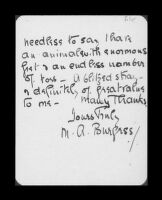 needless to say I have
an animal with enormous
feet & an endless number
of toes — A blotched stray —
& definitely of great value
to me — Many Thanks
Yours truly
M. A. Burgess